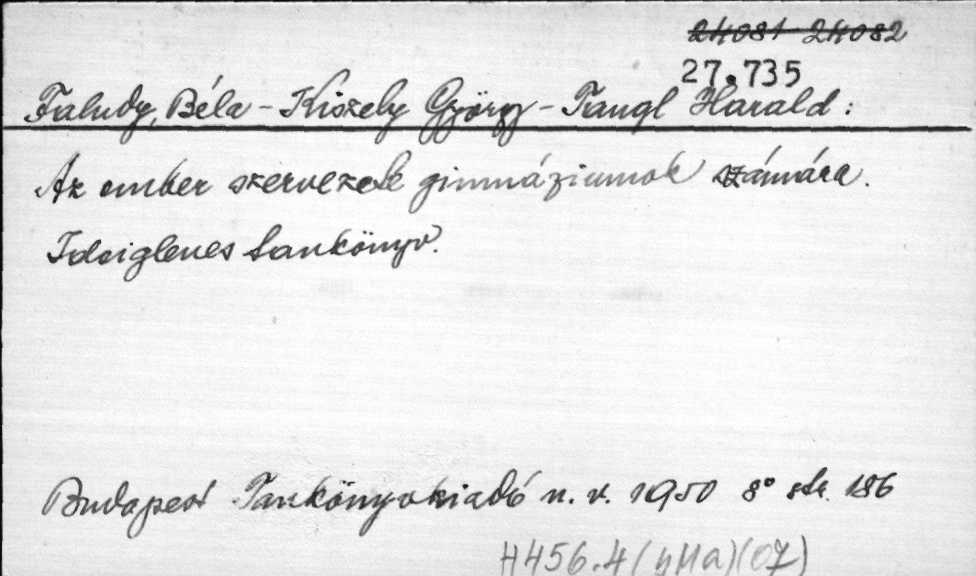 24081 24082
27.735
Faludy, Béla - Kiszely György - Tangl Harald:
Az ember szervezete gimnáziumok számára.
Ideiglenes tankönyv.
Budapest Tankönyvkiadó n. v. 1950 8° str. 186
H456.4 (07)